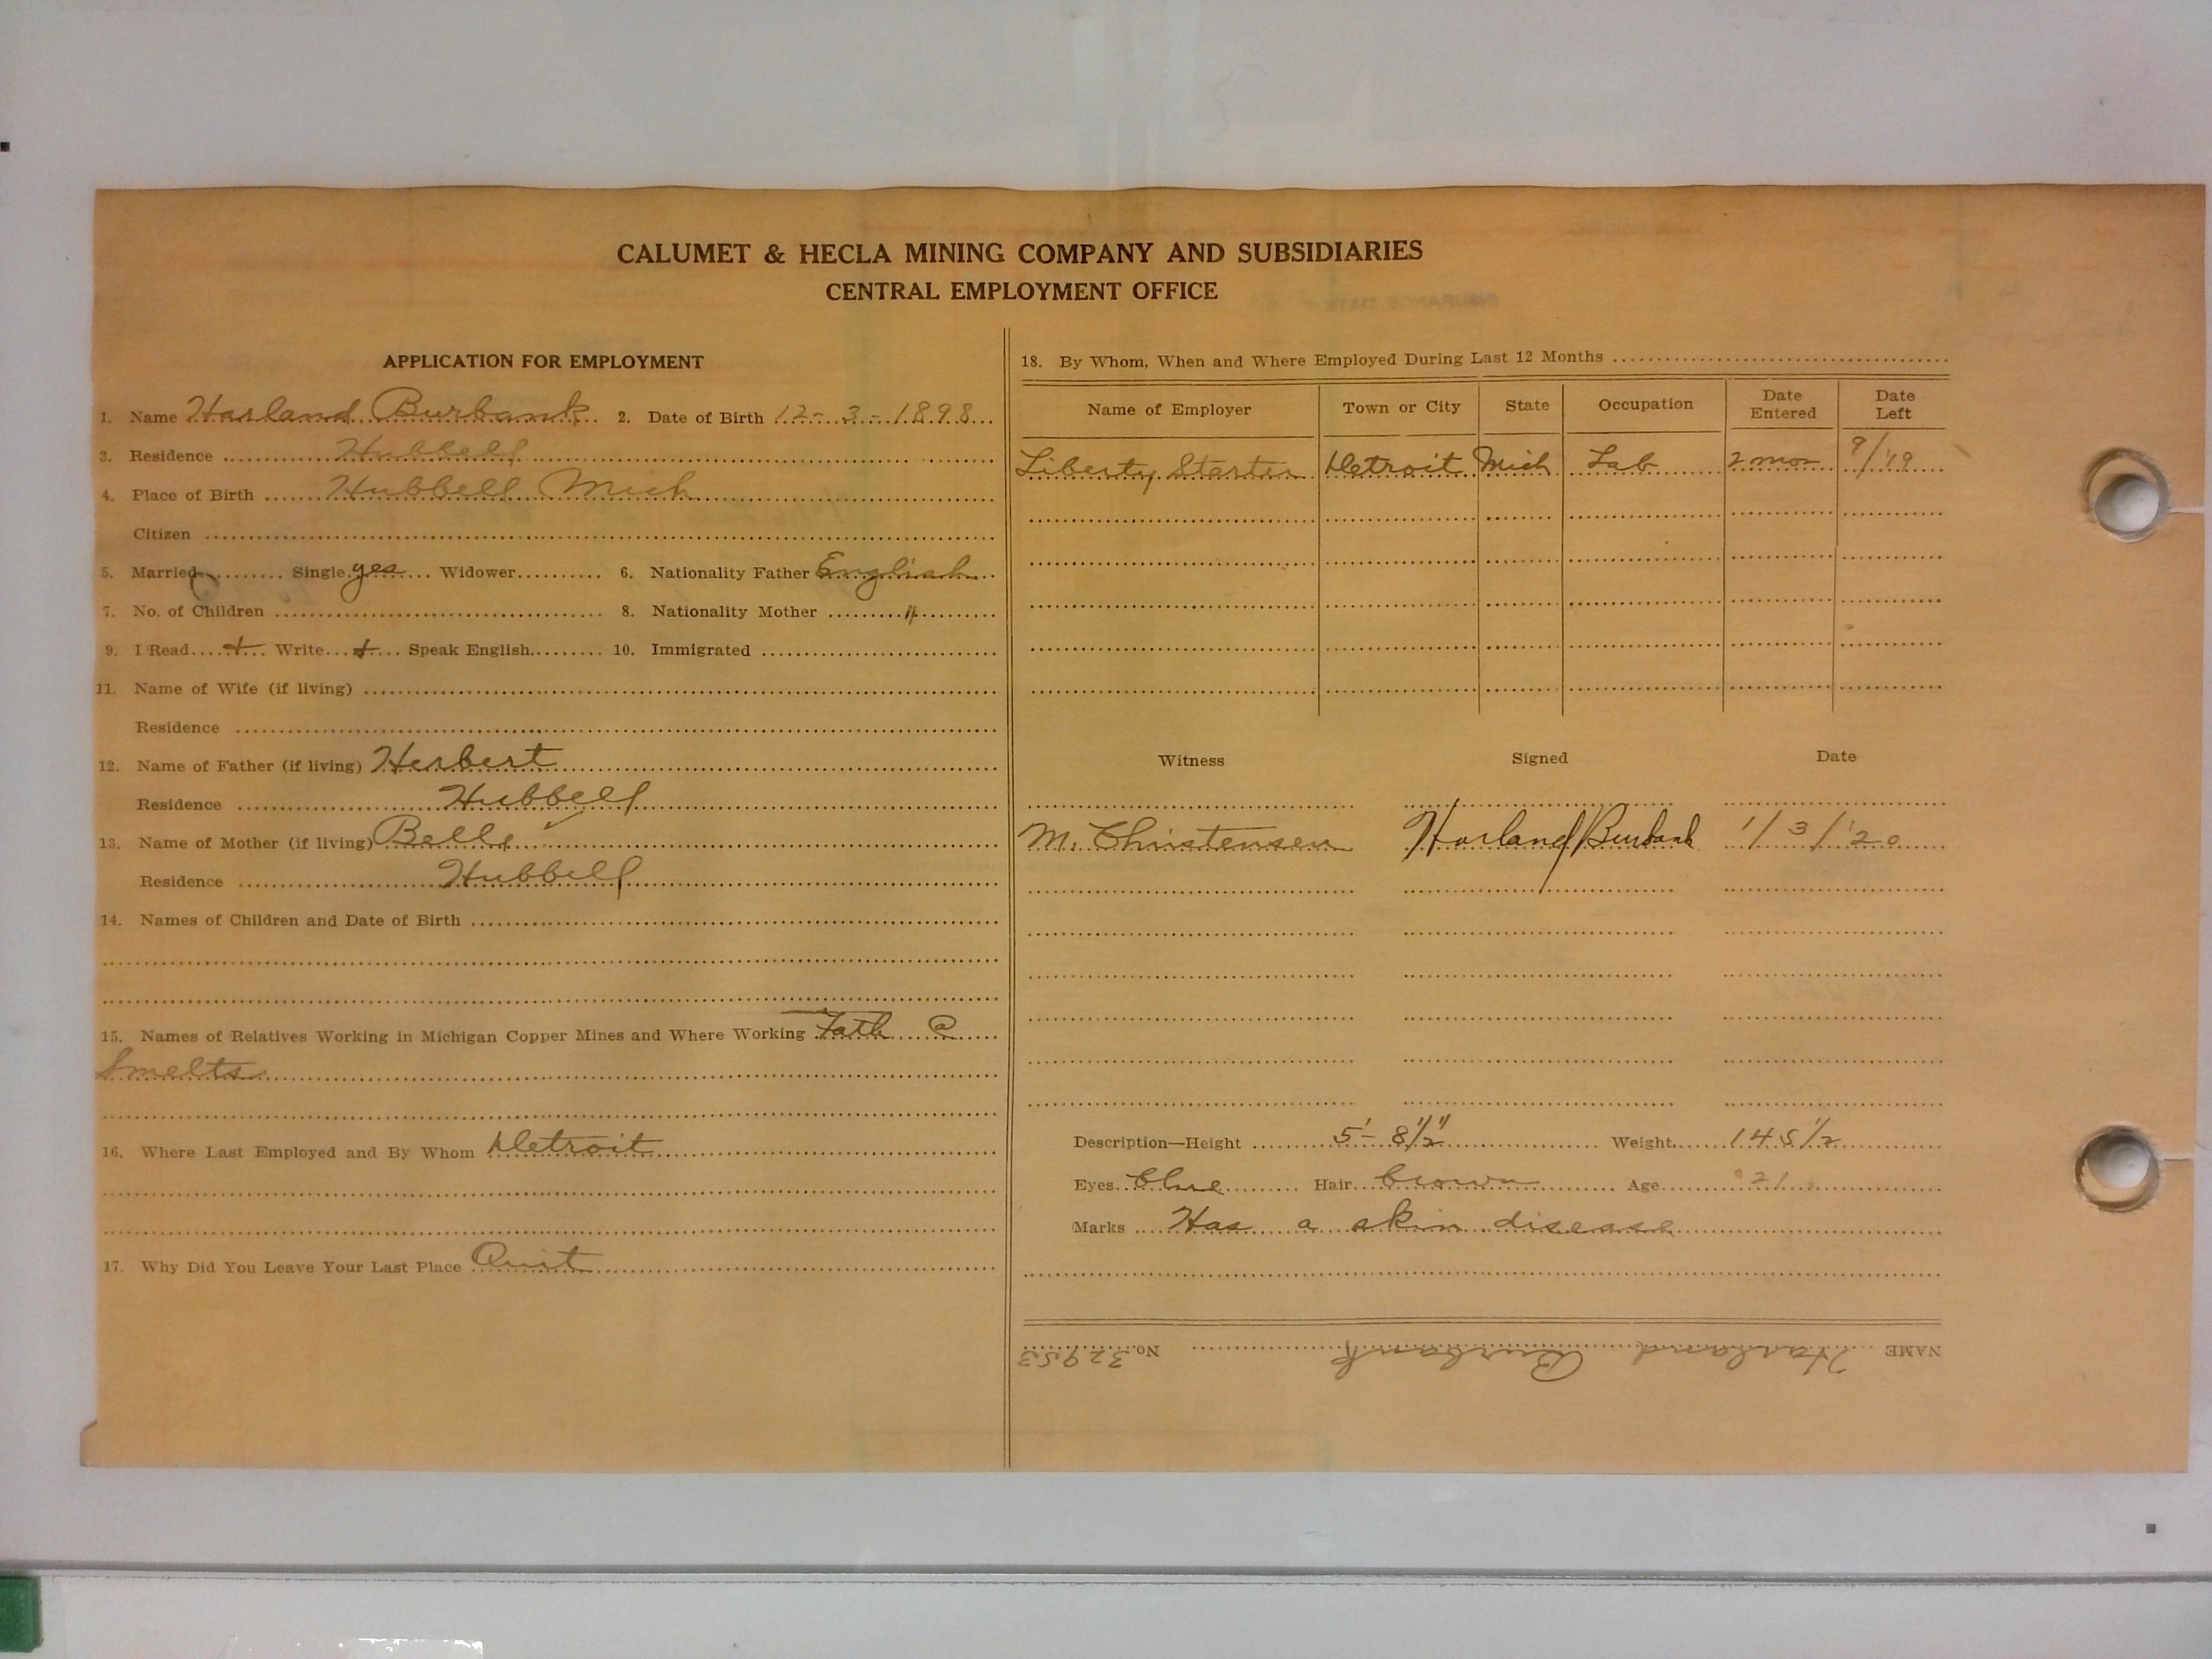 CALUMET & HECLA MINING COMPANY AND SUBSIDIARIES
CENTRAL EMPLOYMENT OFFICE
APPLICATION FOR EMPLOYMENT
1. Name Harland Burbank 2. Date of Birth 12-3-1898
3. Residence Hubbell
4. Place of Birth Hubbell Mich
Citizen
5. Married Single yes Widower 6. Nationality Father English
7. No. of Children 8. Nationality Mother "
9. I Read + Write + Speak English 10. Immigrated
11. Name of Wife (if living)
Residence
12. Name of Father (if living) Herbert
Residence Hubbell
13. Name of Mother (if living) Belle
Residence Hubbell
14. Names of Children and Date of Birth
15. Names of Relatives Working in Michigan Copper Mines and Where Working Fath @
Smelts
16. Where Last Employed and By Whom Detroit
17. Why Did You Leave Your Last Place Quit
18. By Whom, When and Where Employed During Last 12 Months
Name of Employer Town or City State Occupation Date Entered Date Left
Liberty Starter Detroit Mich Lab 2 mos 9/'19
Witness Signed Date
M. Christensen Harland Burbank 1/3/'20
Description—Height 5'- 8 1/2" Weight 145 1/2
Eyes blue Hair brown Age 21
Marks Has a skin disease
NAME Harland Burbank No. 32953